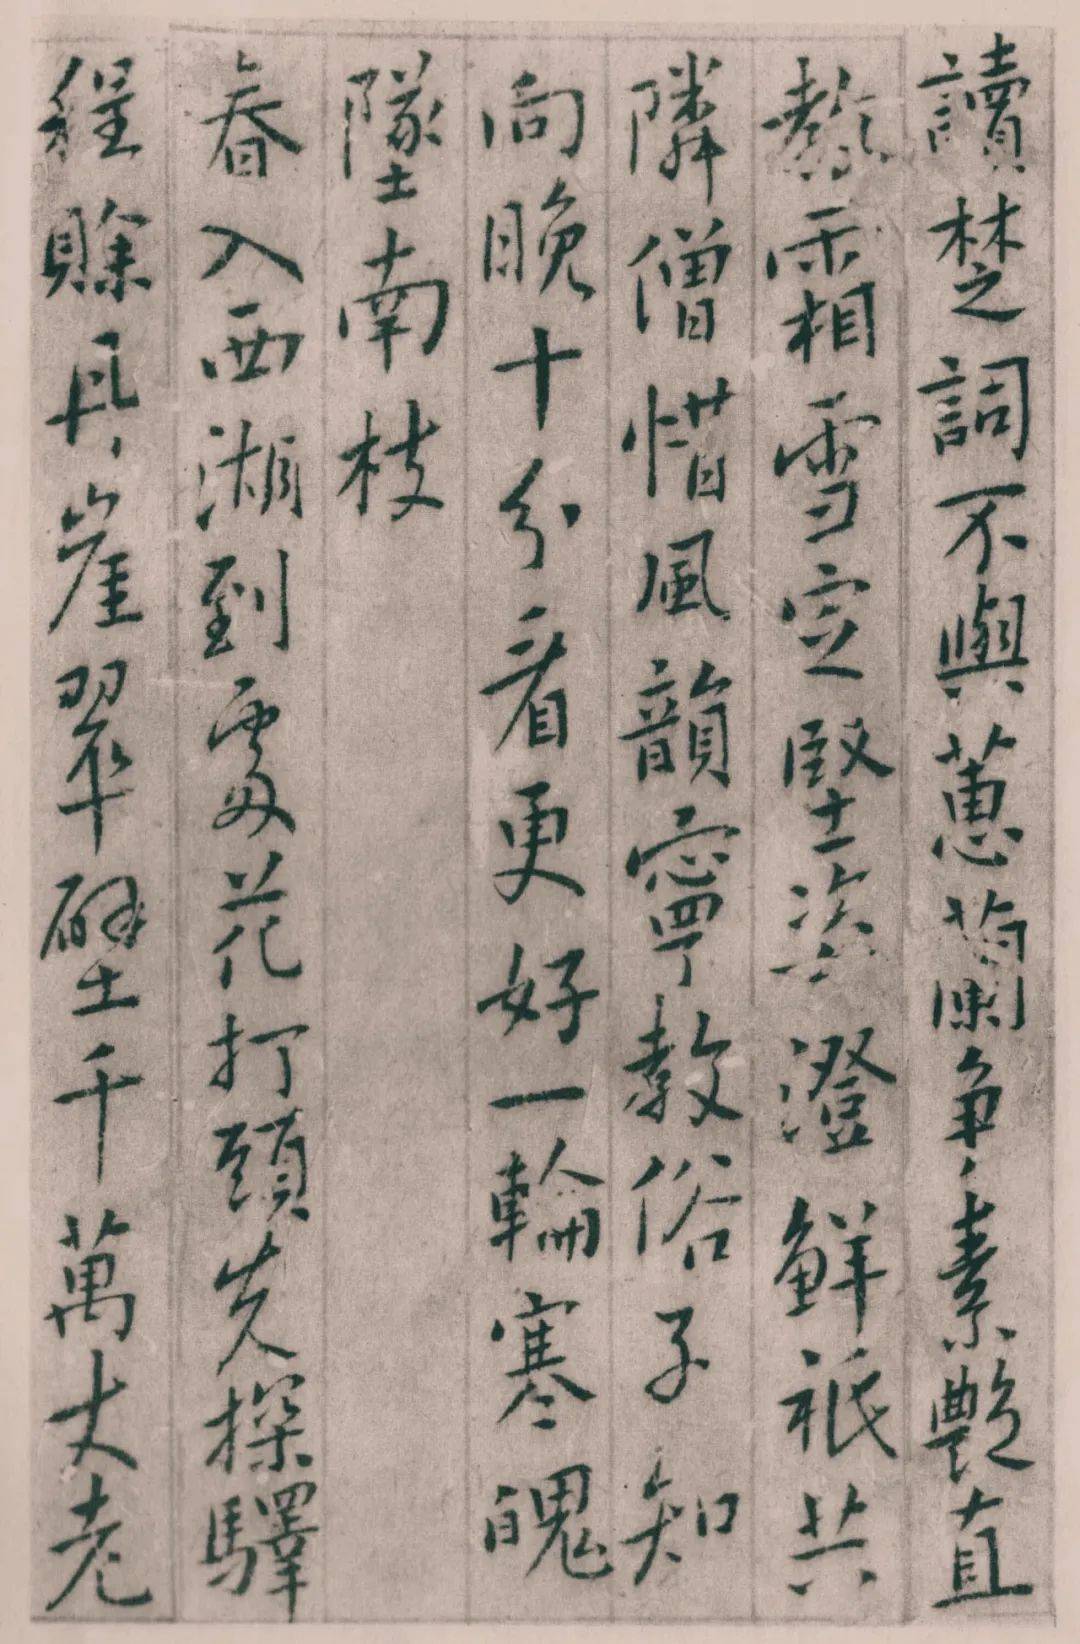 讀楚詞不與蕙蘭爭素艷直
教霜相雪定堅姿澄鮮祇共
隣僧惜風韻寧教俗子知
向晚十分看更好一輪寒魄
墜南枝
春入西湖到處花打頭先探驛
程賖具崖翠壁千萬丈老